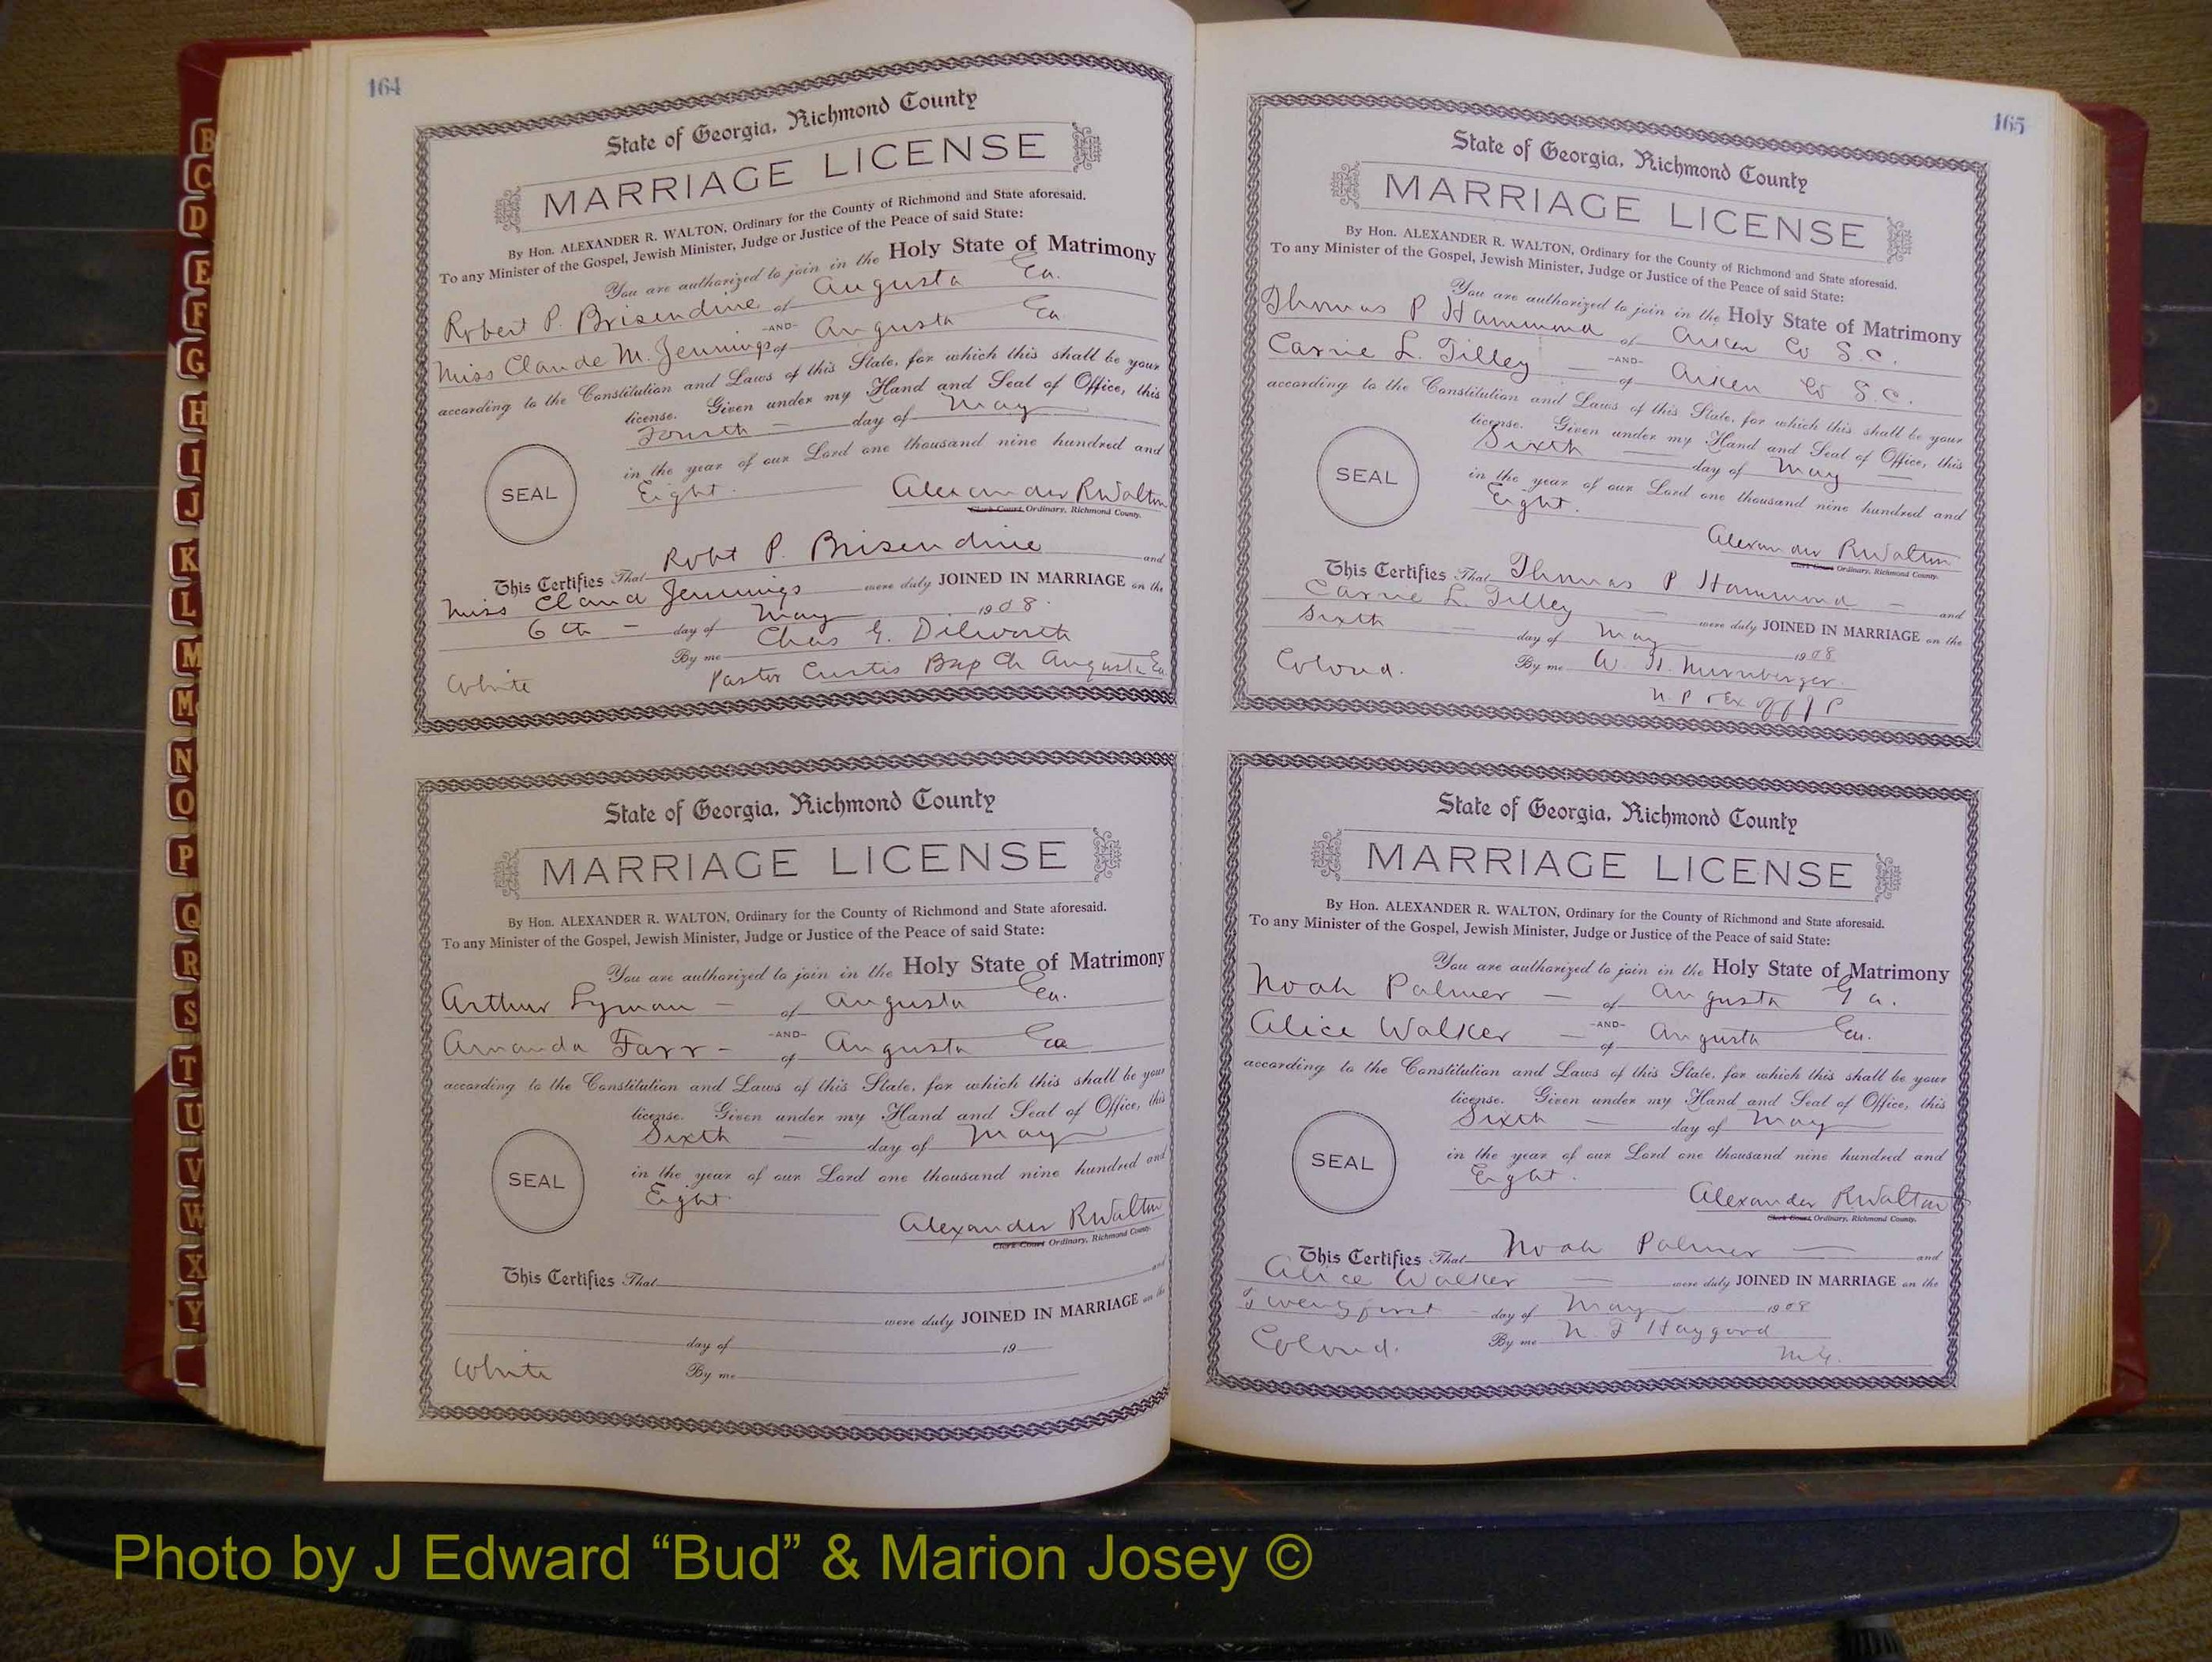 B
C
D
E
F
G
H
I
J
K
L
M
Mc
N
O
P
Q
R
S
T
U
V
W
X
Y
164
State of Georgia, Richmond County
MARRIAGE LICENSE
By Hon. ALEXANDER R. WALTON, Ordinary for the County of Richmond and State aforesaid.
To any Minister of the Gospel, Jewish Minister, Judge or Justice of the Peace of said State:
You are authorized to join in the Holy State of Matrimony
Robert P. Brisendine of Augusta Ga.
-AND-
Miss Claude M. Jennings of Augusta Ga
according to the Constitution and Laws of this State, for which this shall be your
license. Given under my Hand and Seal of Office, this
Fourth — day of May
in the year of our Lord one thousand nine hundred and
SEAL
Eight.
Alexander R Walton
Clerk Court Ordinary, Richmond County.
This Certifies That Robt P. Brisendine and
Miss Claud Jennings were duly JOINED IN MARRIAGE on the
6th — day of May 1908.
By me Chas G. Dilworth
White
Pastor Curtis Bap Ch Augusta Ga
State of Georgia, Richmond County
MARRIAGE LICENSE
By Hon. ALEXANDER R. WALTON, Ordinary for the County of Richmond and State aforesaid.
To any Minister of the Gospel, Jewish Minister, Judge or Justice of the Peace of said State:
You are authorized to join in the Holy State of Matrimony
Arthur Lyman — of Augusta Ga.
-AND-
Amanda Farr - of Augusta Ga
according to the Constitution and Laws of this State, for which this shall be your
license. Given under my Hand and Seal of Office, this
Sixth — day of May
in the year of our Lord one thousand nine hundred and
SEAL
Eight
Alexander R Walton
Clerk Court Ordinary, Richmond County.
This Certifies That and
were duly JOINED IN MARRIAGE on the
day of 19
White By me
165
State of Georgia, Richmond County
MARRIAGE LICENSE
By Hon. ALEXANDER R. WALTON, Ordinary for the County of Richmond and State aforesaid.
To any Minister of the Gospel, Jewish Minister, Judge or Justice of the Peace of said State:
You are authorized to join in the Holy State of Matrimony
Thomas P Hammond of Aiken Co S.C.
-AND-
Carrie L. Tilley — of Aiken Co S.C.
according to the Constitution and Laws of this State, for which this shall be your
license. Given under my Hand and Seal of Office, this
Sixth — day of May —
in the year of our Lord one thousand nine hundred and
SEAL
Eight.
Alexander R Walton
Clerk Court Ordinary, Richmond County.
This Certifies That Thomas P. Hammond — and
Carrie L. Tilley — were duly JOINED IN MARRIAGE on the
Sixth — day of May 1908
Colored. By me W. H. Nurnberger.
N. P & Ex off J P
State of Georgia, Richmond County
MARRIAGE LICENSE
By Hon. ALEXANDER R. WALTON, Ordinary for the County of Richmond and State aforesaid.
To any Minister of the Gospel, Jewish Minister, Judge or Justice of the Peace of said State:
You are authorized to join in the Holy State of Matrimony
Noah Palmer — of Augusta Ga.
-AND-
Alice Walker — of Augusta Ga.
according to the Constitution and Laws of this State, for which this shall be your
license. Given under my Hand and Seal of Office, this
Sixth — day of May
in the year of our Lord one thousand nine hundred and
SEAL
Eight.
Alexander R. Walton
Clerk Court Ordinary, Richmond County.
This Certifies That Noah Palmer — and
Alice Walker — were duly JOINED IN MARRIAGE on the
Twenty first — day of May 1908
Colored. By me N. F Haygood
M.G.
Photo by J Edward “Bud” & Marion Josey ©